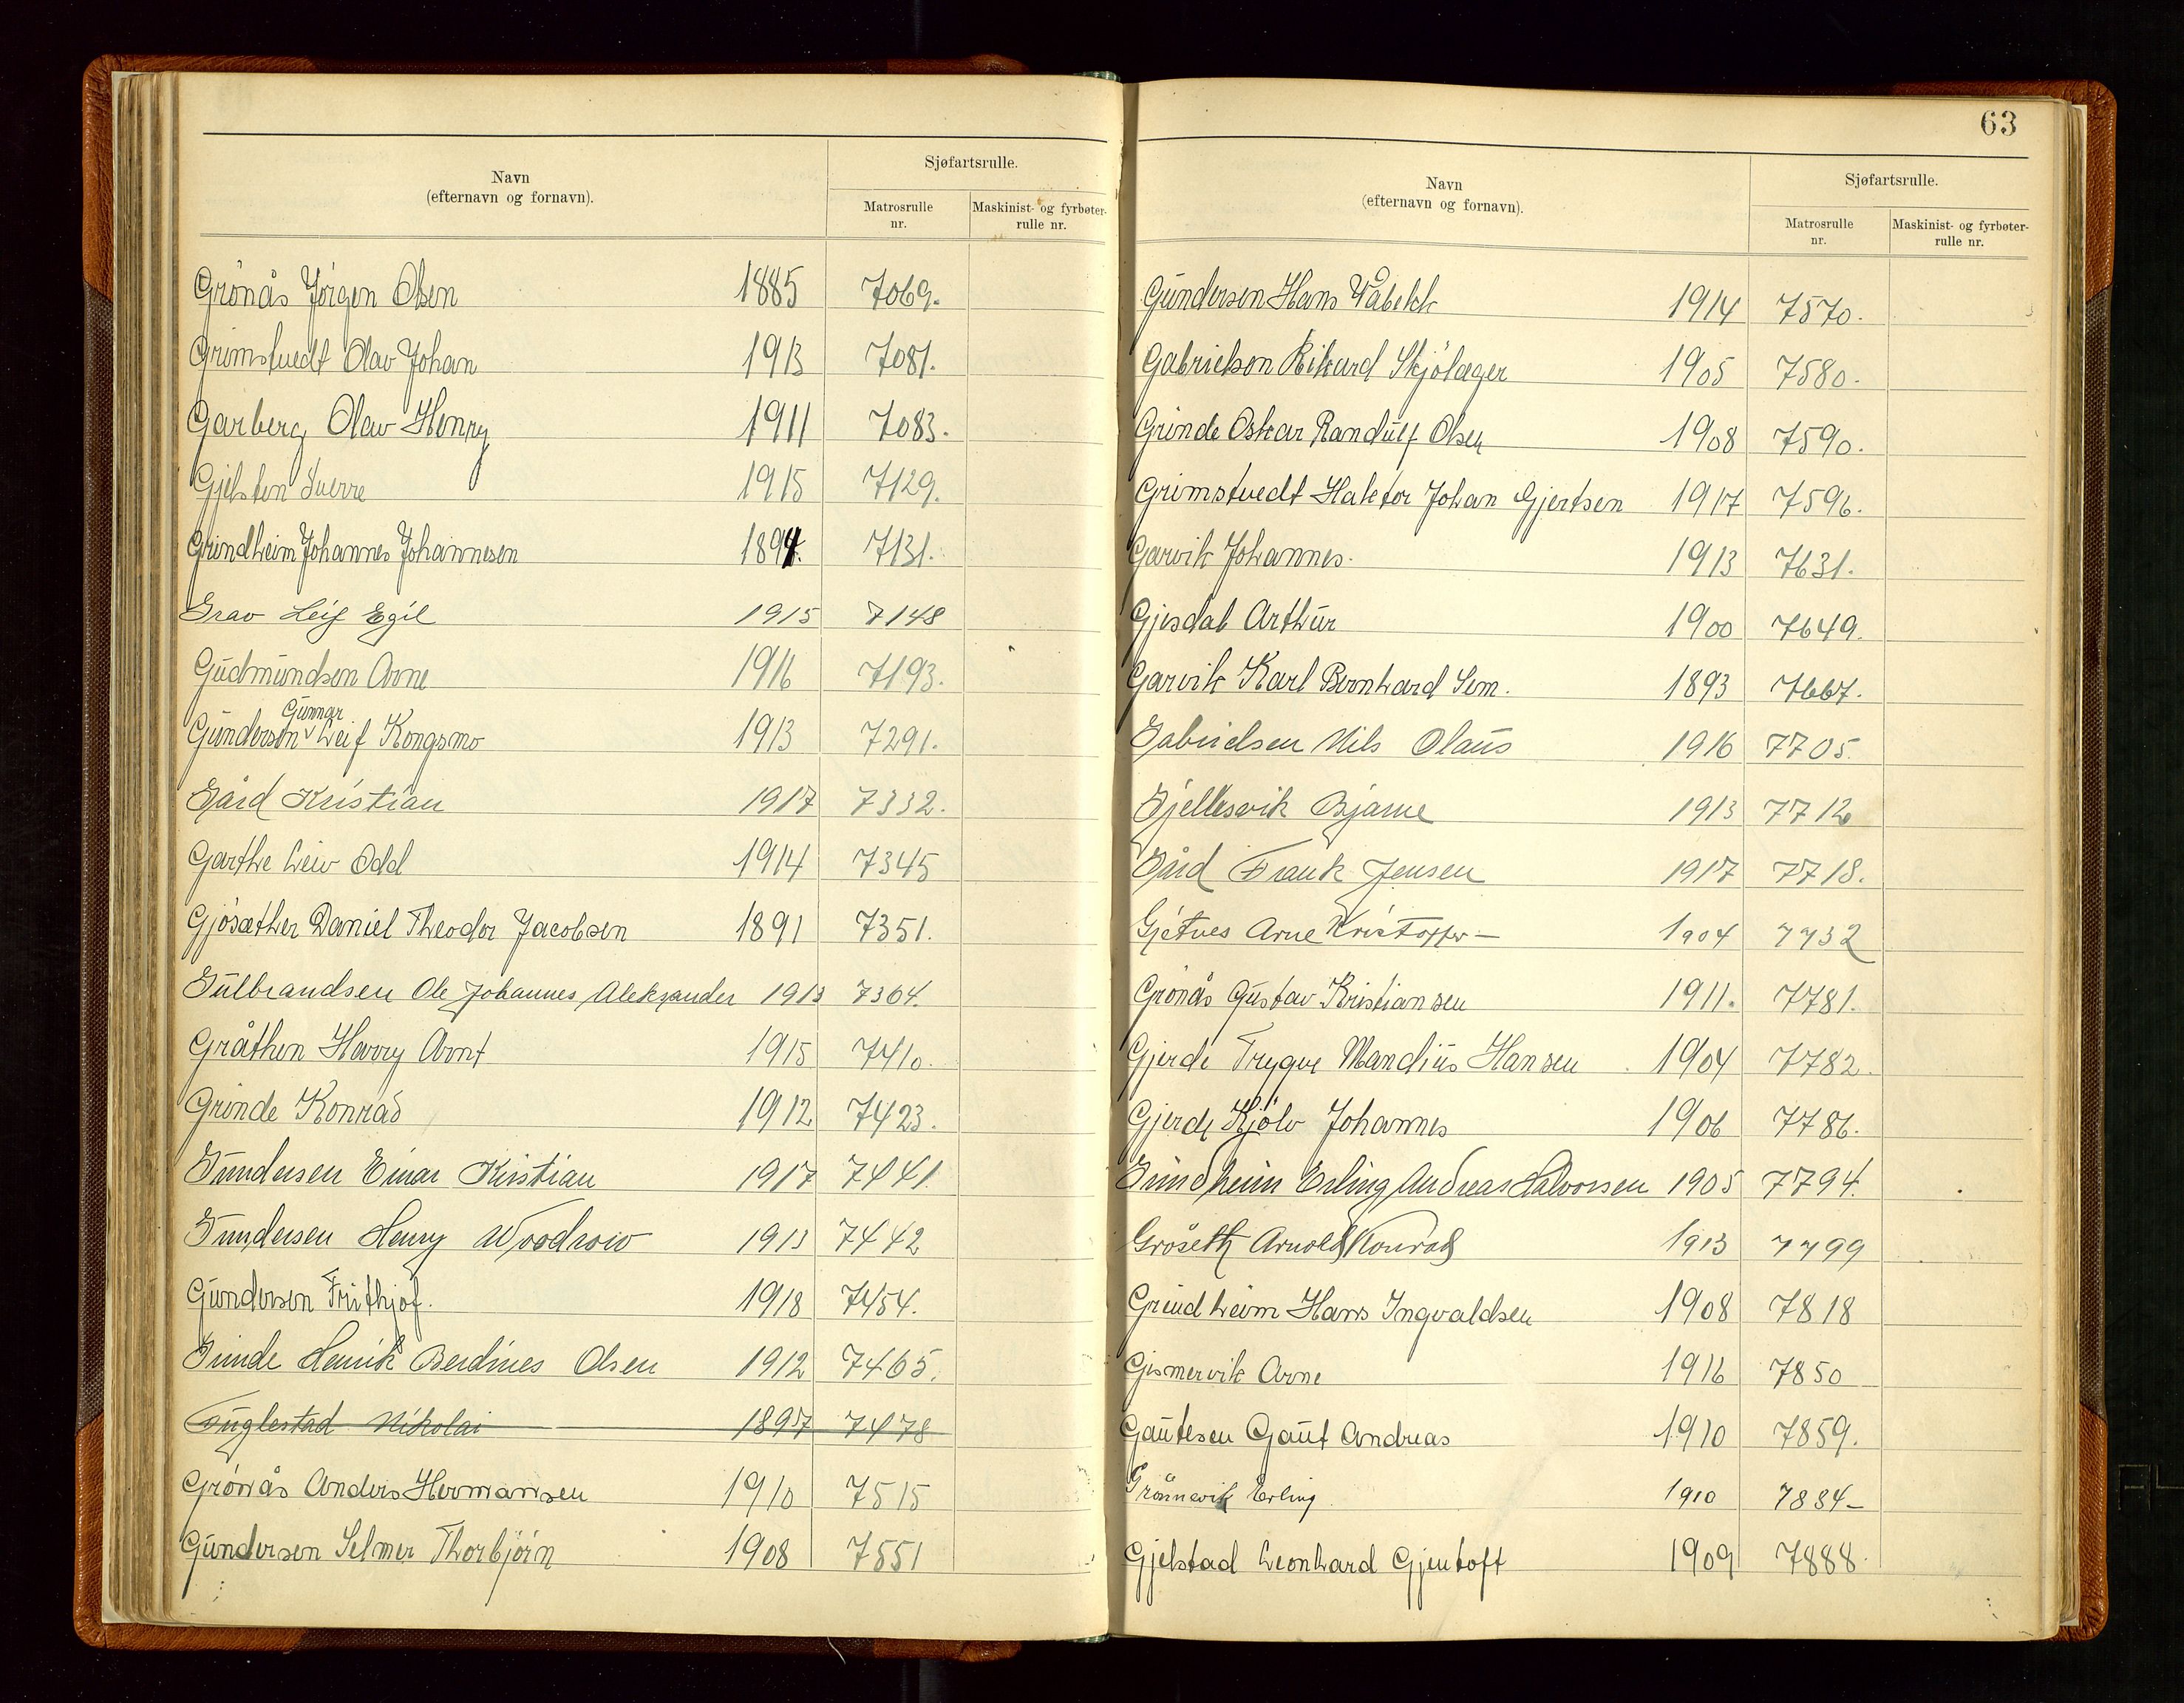 Navn
(efternavn og fornavn).
Sjøfartsrulle.
Matrosrulle
nr.
Maskinist- og fyrbøter-
rulle nr.
Grönås Jörgen Olsen 1885 7069.
Grimstvedt Olav Johan 1913 7081.
Garberg Olav Henry 1911 7083.
Gjelsten Sverre 1915 7129.
Grindheim Johannes Johannesen 1894. 7131.
Grav Leif Egil 1915 7148
Gudmundsen Arne 1916 7193.
Gunnar
Gundersen Leif Kongsmo 1913 7291.
Gård Kristian 1917 7332.
Garthe Leiv Odd 1914 7345
Gjösæther Daniel Theodor Jacobsen 1891 7351.
Gulbrandsen Ole Johannes Aleksander 1913 7364.
Gråthen Harry Arnt 1915 7410.
Grinde Konrad 1912 7423.
Gundersen Einar Kristian 1917 7441
Gundersen Henry Woodrow 1913 7442
Gundersen Frithjof. 1918 7454.
Grinde Henrik Berdines Olsen 1912 7465.
Fuglestad Nikolai 1897 7478
Grönås Anders Hermansen 1910 7515
Gundersen Selmer Thorbjörn 1908 7551
63
Navn
(efternavn og fornavn).
Sjøfartsrulle.
Matrosrulle
nr.
Maskinist- og fyrbøter-
rulle nr.
Gundersen Hans Vabekk 1914 7570.
Gabrielsen Rikard Skjölæger 1905 7580.
Grinde Oskar Randulf Olsen 1908 7590.
Grimstvedt Haktor Johan Gjertsen 1917 7596.
Garvik Johannes. 1913 7631.
Gjesdal Arthur 1900 7649.
Garvik Karl Bernhard Sem. 1893 7667.
Gabrielsen Nils Olaus 1916 7705.
Gjellesvik Bjarne 1913 7712
Gård Frank Jensen 1917 7718.
Gjetnes Arne Kristoffer — 1904 7732
Grönås Gustav Kristiansen 1911. 7781.
Gjerde Trygve Mandius Hansen 1904 7782.
Gjerde Kjölv Johannes 1906 7786.
Grindheim Erling Andreas Halvorsen 1905 7794.
Gröseth Arnold Konrad 1913 7799
Grindheim Hans Ingvaldsen 1908 7818
Gismervik Arne 1916 7850
Gautesen Gaut Andreas 1910 7859.
Grönnevik Erling 1910 7884-
Gjelstad Leonhard Gjentoft 1909 7888.